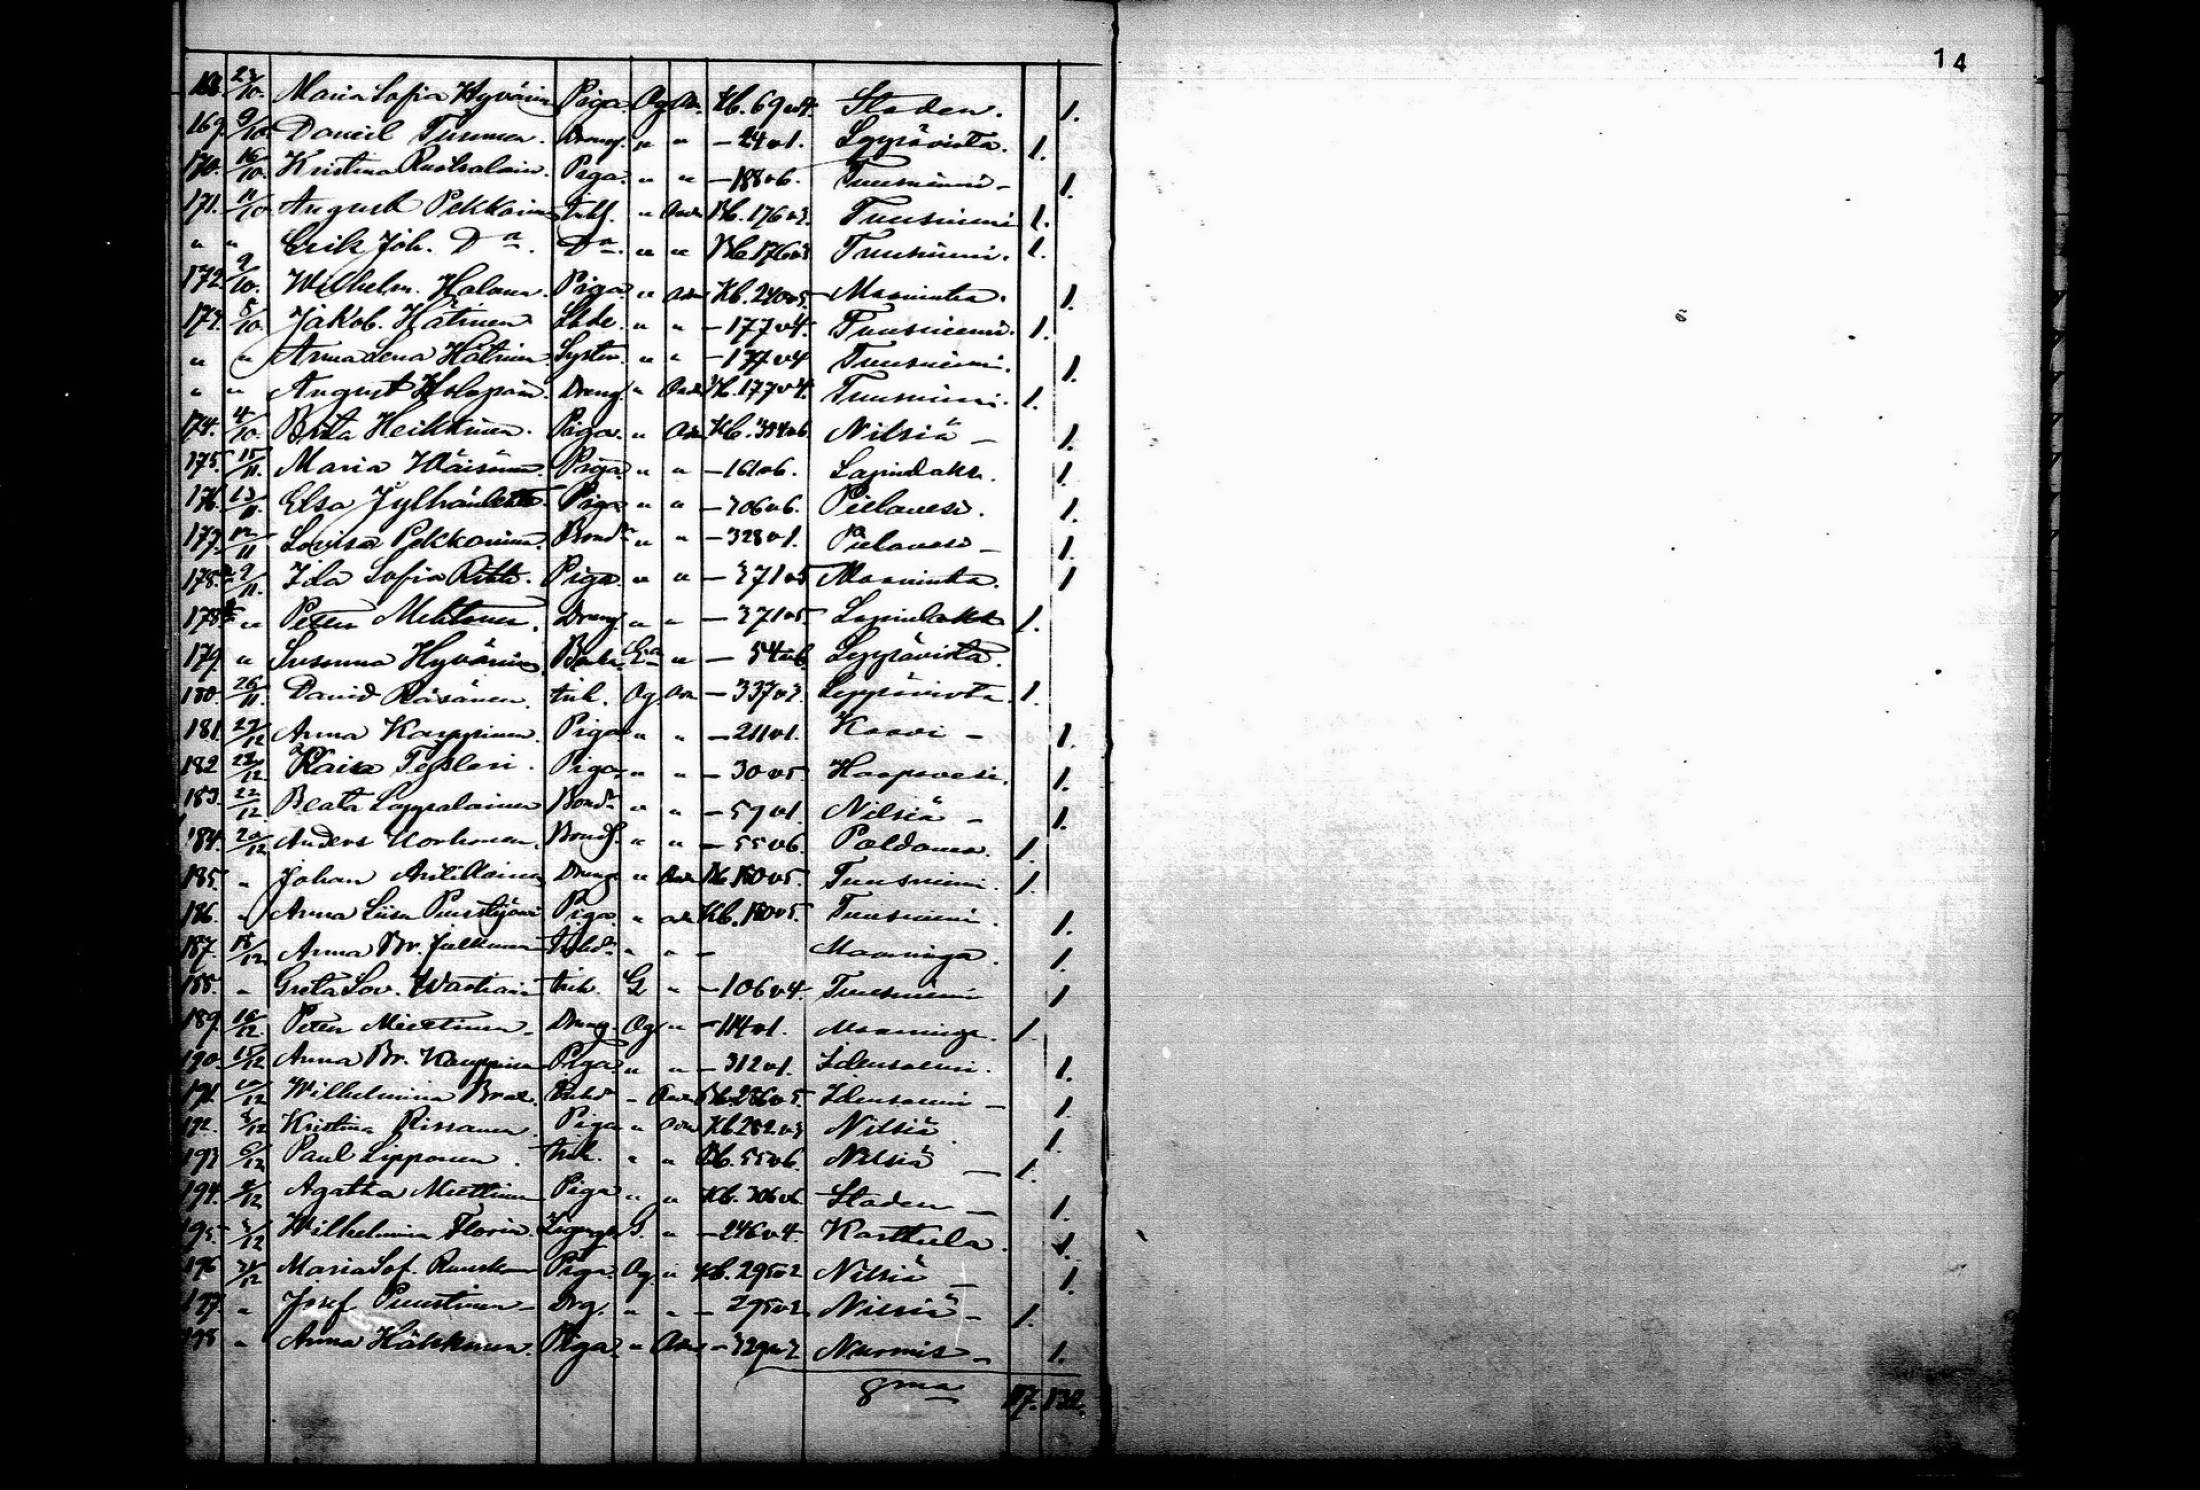 14
168. 23/10. Maria Sofia Hyvärin Piga Og Kb. 69 v4. Staden. 1.
169. 9/10. Daniel Drang. " " — 24 v1. Leppävirta. 1.
170. 16/10. Kristina Piga. " " — 188 v6. Tuusniemi — 1.
171. 11/10 August Pekkain Inhs. " Bb. 176 v3. Tuusniemi 1.
" " Erik Joh. Do. Do. " " Bb. 176 v3 Tuusniemi. 1.
172. 9/10. Wilhelm. Halonen. Piga " Kb. 240 v5. Maaninka. 1.
173. 5/10. Jakob. Hätinen " " — 177 v4. Tuusniemi. 1.
" " Anna Lena Hätinin Syster. " " — 177 v4 Tuusniemi. 1.
" " August Holopain. Drang. " Bb. 177 v4. Tuusniemi. 1.
174. 4/10. Brita Heikkinen. Piga. " Kb. v6. Nilsiä — 1.
175. 15/11. Maria Wäisänen. Piga " " — 161 v6. Lapinlaks. 1.
176. 13/11. Elsa Piga " " — 306 v6. Pielavesi. 1.
177. 12/11 Lovisa Pekkarinen. Bondd. " " — 328 v1. Pielavesi — 1.
178. 9/11. Ida Sofia Piga. " " — 371 v5 Maaninka. 1
178 " Petter Miettinen. Drang " " — 371 v5. Lapinlaks 1.
179 " Susanna Hyvärinen " — 54 v6. Leppävirta.
180. 26/11. David Räsänen. Inh. Og. — 337 v3. Leppävirta. 1.
181. 27/12 Anna Kauppinen. Piga " " — 211 v1. Kaavi — 1.
182 /12 Kaisa Piga " " — 30 v5 Haapavesi. 1.
183. 22/12. Beata Lappalainen Bondd. " " — 59 v1. Nilsiä — 1.
184. 20/12 Anders Korhonen. Bonds. " " — 55 v6. Paldamo. 1.
185. " Johan Antikainen Drang " Bb. 180 v5. Tuusniemi. 1.
186. " Anna Liisa Piga " Kb. 180 v5. Tuusniemi. 1.
187. 18/12 Anna Br. Julkunen Inhd. " " — Maaninga. 1.
188. " Greta Lov. Inh. G " — 106 v4. Tuusniemi 1
189. 16/12. Petter Miettinen. Drang. Og " — 114 v1. Maaninga. 1.
190. 15/12 Anna Br. Kauppinen Piga " " — 312 v1. Idensalmi. 1.
191. 10/12 Wilhelmina Inhd. " Bb. 286 v5. Idensalmi — 1.
192. 8/12 Kristina Rissanen. Piga " Kb. 282 v3 Nilsiä 1.
193 6/12 Paul Lipponen. Inh. " " Bb. 55 v6. Nilsiä — 1.
194. 4/12 Agatha Miettinen Piga " " Kb. 306 v6 Staden — 1.
195. 3/12 Wilhelmina Florin. G. " — 246 v4. Karttula. 1.
196 /12 Maria Sof. Piga. Og. " Kb. 295 v2 Nilsiä — 1.
197. " Josef Puustinen — Drg. " " — 295 v2 Nilsiä — 1.
198 " Anna Häkkinen. Piga. " — 329 v3 Nurmis — 1.
117. 132.